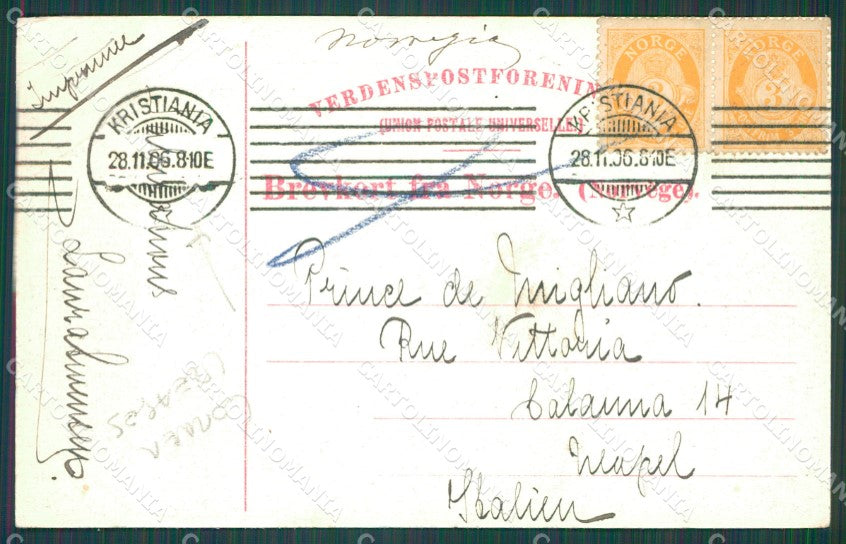 Norvegia
Imprimée
VERDENSPOSTFORENIN
(UNION POSTALE UNIVERSELLE)
NORGE
3
NORGE
3
KRISTIANIA
28.11.06.8-10E
KRISTIANIA
28.11.06.8-10E
Brevkort fra Norge. (N
ge).
Prince de Migliano.
Rue Vittoria
Calanna 14
Neapel
Italien
CARTOLINOMANIA